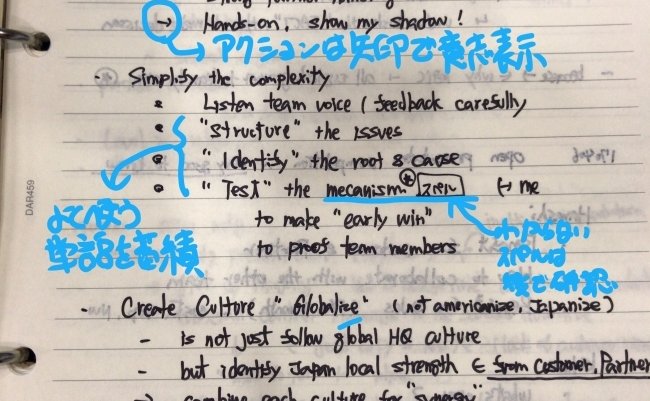 → Hands-on, show my shadow!
→ アクションは矢印で意志表示
- Simplify the complexity
• Listen team voice / feedback carefully
• "Structure" the issues
• "Identify" the root & cause
• "Test" the mecanism スペル ↦ me
to make "early win"
to proof team members
よく使う
単語を蓄積
わからない
スペルは
後で確認
DAR459
- Create Culture "Globalize" (not americanize, Japanize)
- is not just follow global HQ culture
- but identify Japan local strength ∈ from Customer, Partner
→ combine each culture for "synergy"